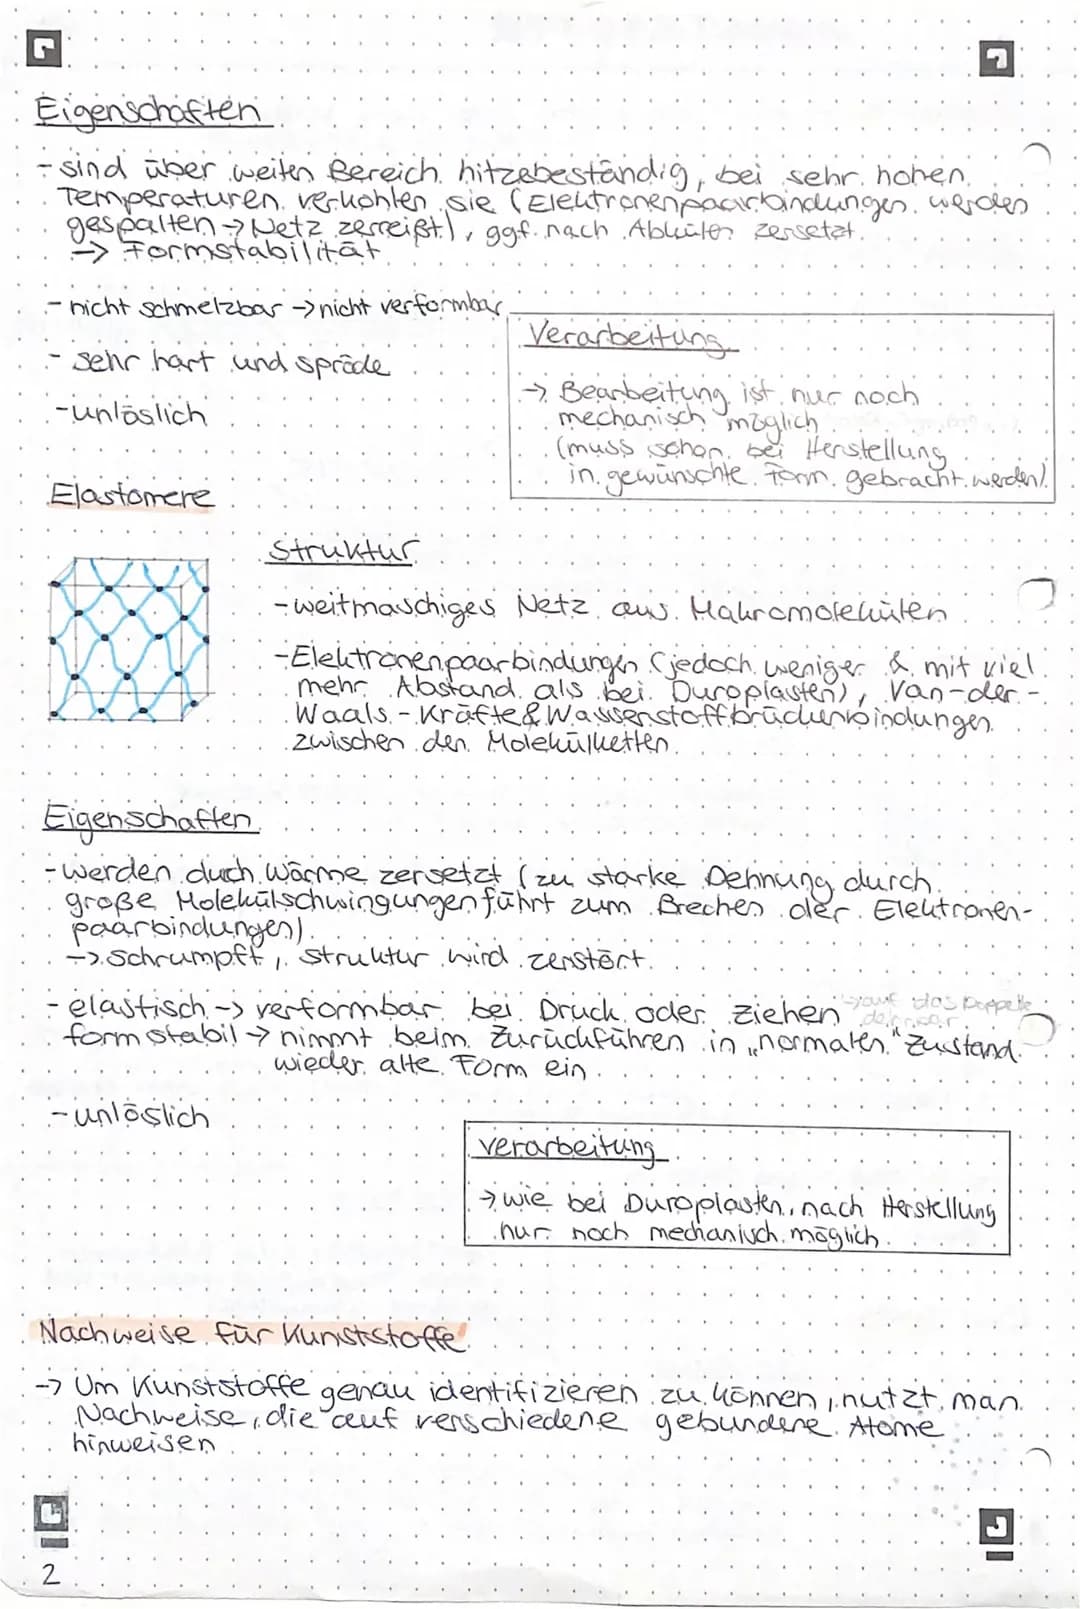 Eigenschaften
- sind über weiten Bereich hitzebeständig, bei sehr hohen
Temperaturen verkohlen sie (Elektronenpaarbindungen werden
gespalten → Netz zerreißt), ggf. nach Abkühlen zersetzt
→ Formstabilität
- nicht schmelzbar → nicht verformbar
- sehr hart und spröde
- unlöslich
Verarbeitung
→ Bearbeitung ist nur noch
mechanisch möglich
(muss schon bei Herstellung
in gewünschte Form gebracht werden)
Elastomere
Struktur
- weitmaschiges Netz aus Makromolekülen
- Elektronenpaarbindungen (jedoch weniger & mit viel
mehr Abstand als bei Duroplasten), Van-der-
Waals-Kräfte & Wasserstoffbrückenbindungen
zwischen den Molekülketten
Eigenschaften
- werden duch Wärme zersetzt (zu starke Dehnung durch
große Molekülschwingungen führt zum Brechen der Elektronen-
paarbindungen)
→ schrumpft, Struktur wird zerstört
- elastisch → verformbar bei Druck oder Ziehen
↳ auf das Doppelte
dehnbar
formstabil → nimmt beim Zurückführen in „normalen" Zustand
wieder alte Form ein
- unlöslich
Verarbeitung
→ wie bei Duroplasten, nach Herstellung
nur noch mechanisch möglich
Nachweise für Kunststoffe
→ Um Kunststoffe genau identifizieren zu können, nutzt man
Nachweise, die auf verschiedene gebundene Atome
hinweisen
2